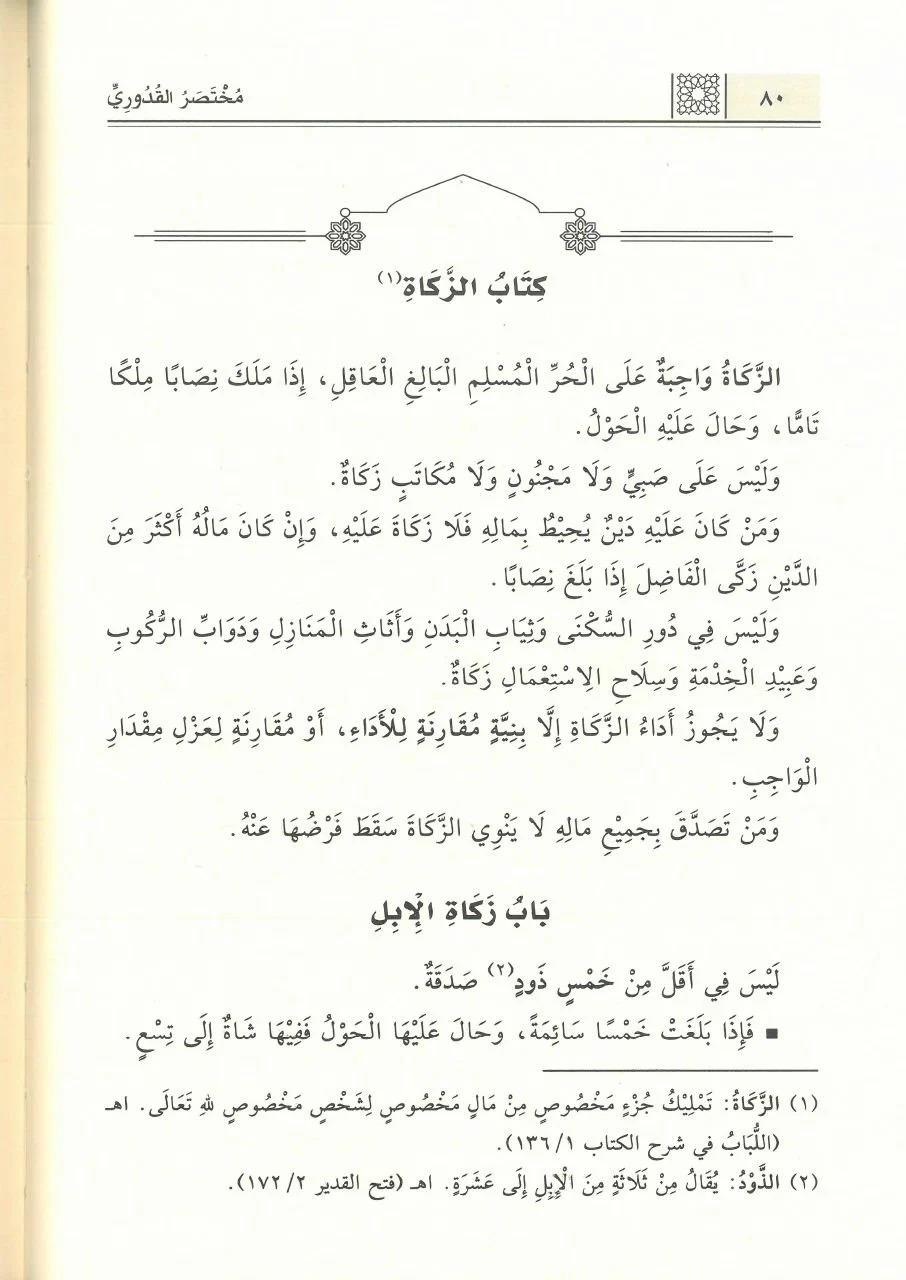 ٨٠
مُخْتَصَرُ القُدُورِيِّ
كِتَابُ الزَّكَاةِ(١)
الزَّكَاةُ وَاجِبَةٌ عَلَى الْحُرِّ الْمُسْلِمِ الْبَالِغِ الْعَاقِلِ، إِذَا مَلَكَ نِصَابًا مِلْكًا
تَامًّا، وَحَالَ عَلَيْهِ الْحَوْلُ.
وَلَيْسَ عَلَى صَبِيٍّ وَلَا مَجْنُونٍ وَلَا مُكَاتَبٍ زَكَاةٌ.
وَمَنْ كَانَ عَلَيْهِ دَيْنٌ يُحِيْطُ بِمَالِهِ فَلَا زَكَاةَ عَلَيْهِ، وَإِنْ كَانَ مَالُهُ أَكْثَرَ مِنَ
الدَّيْنِ زَكَّى الْفَاضِلَ إِذَا بَلَغَ نِصَابًا.
وَلَيْسَ فِي دُورِ السُّكْنَى وَثِيَابِ الْبَدَنِ وَأَثَاثِ الْمَنَازِلِ وَدَوَابِّ الرُّكُوبِ
وَعَبِيْدِ الْخِدْمَةِ وَسِلَاحِ الِاسْتِعْمَالِ زَكَاةٌ.
وَلَا يَجُوزُ أَدَاءُ الزَّكَاةِ إِلَّا بِنِيَّةٍ مُقَارِنَةٍ لِلْأَدَاءِ، أَوْ مُقَارِنَةٍ لِعَزْلِ مِقْدَارِ
الْوَاجِبِ.
وَمَنْ تَصَدَّقَ بِجَمِيْعِ مَالِهِ لَا يَنْوِي الزَّكَاةَ سَقَطَ فَرْضُهَا عَنْهُ.
بَابُ زَكَاةِ الْإِبِلِ
لَيْسَ فِي أَقَلَّ مِنْ خَمْسِ ذَودٍ(٢) صَدَقَةٌ.
■ فَإِذَا بَلَغَتْ خَمْسًا سَائِمَةً، وَحَالَ عَلَيْهَا الْحَوْلُ فَفِيْهَا شَاةٌ إِلَى تِسْعٍ.
(١) الزَّكَاةُ: تَمْلِيْكُ جُزْءٍ مَخْصُوصٍ مِنْ مَالٍ مَخْصُوصٍ لِشَخْصٍ مَخْصُوصٍ لِلهِ تَعَالَى. اهـ
(اللُّبَابُ في شرح الكتاب ١/ ١٣٦).
(٢) الذَّوْدُ: يُقَالُ مِنْ ثَلَاثَةٍ مِنَ الْإِبِلِ إِلَى عَشَرَةٍ. اهـ (فتح القدير ٢/ ١٧٢).